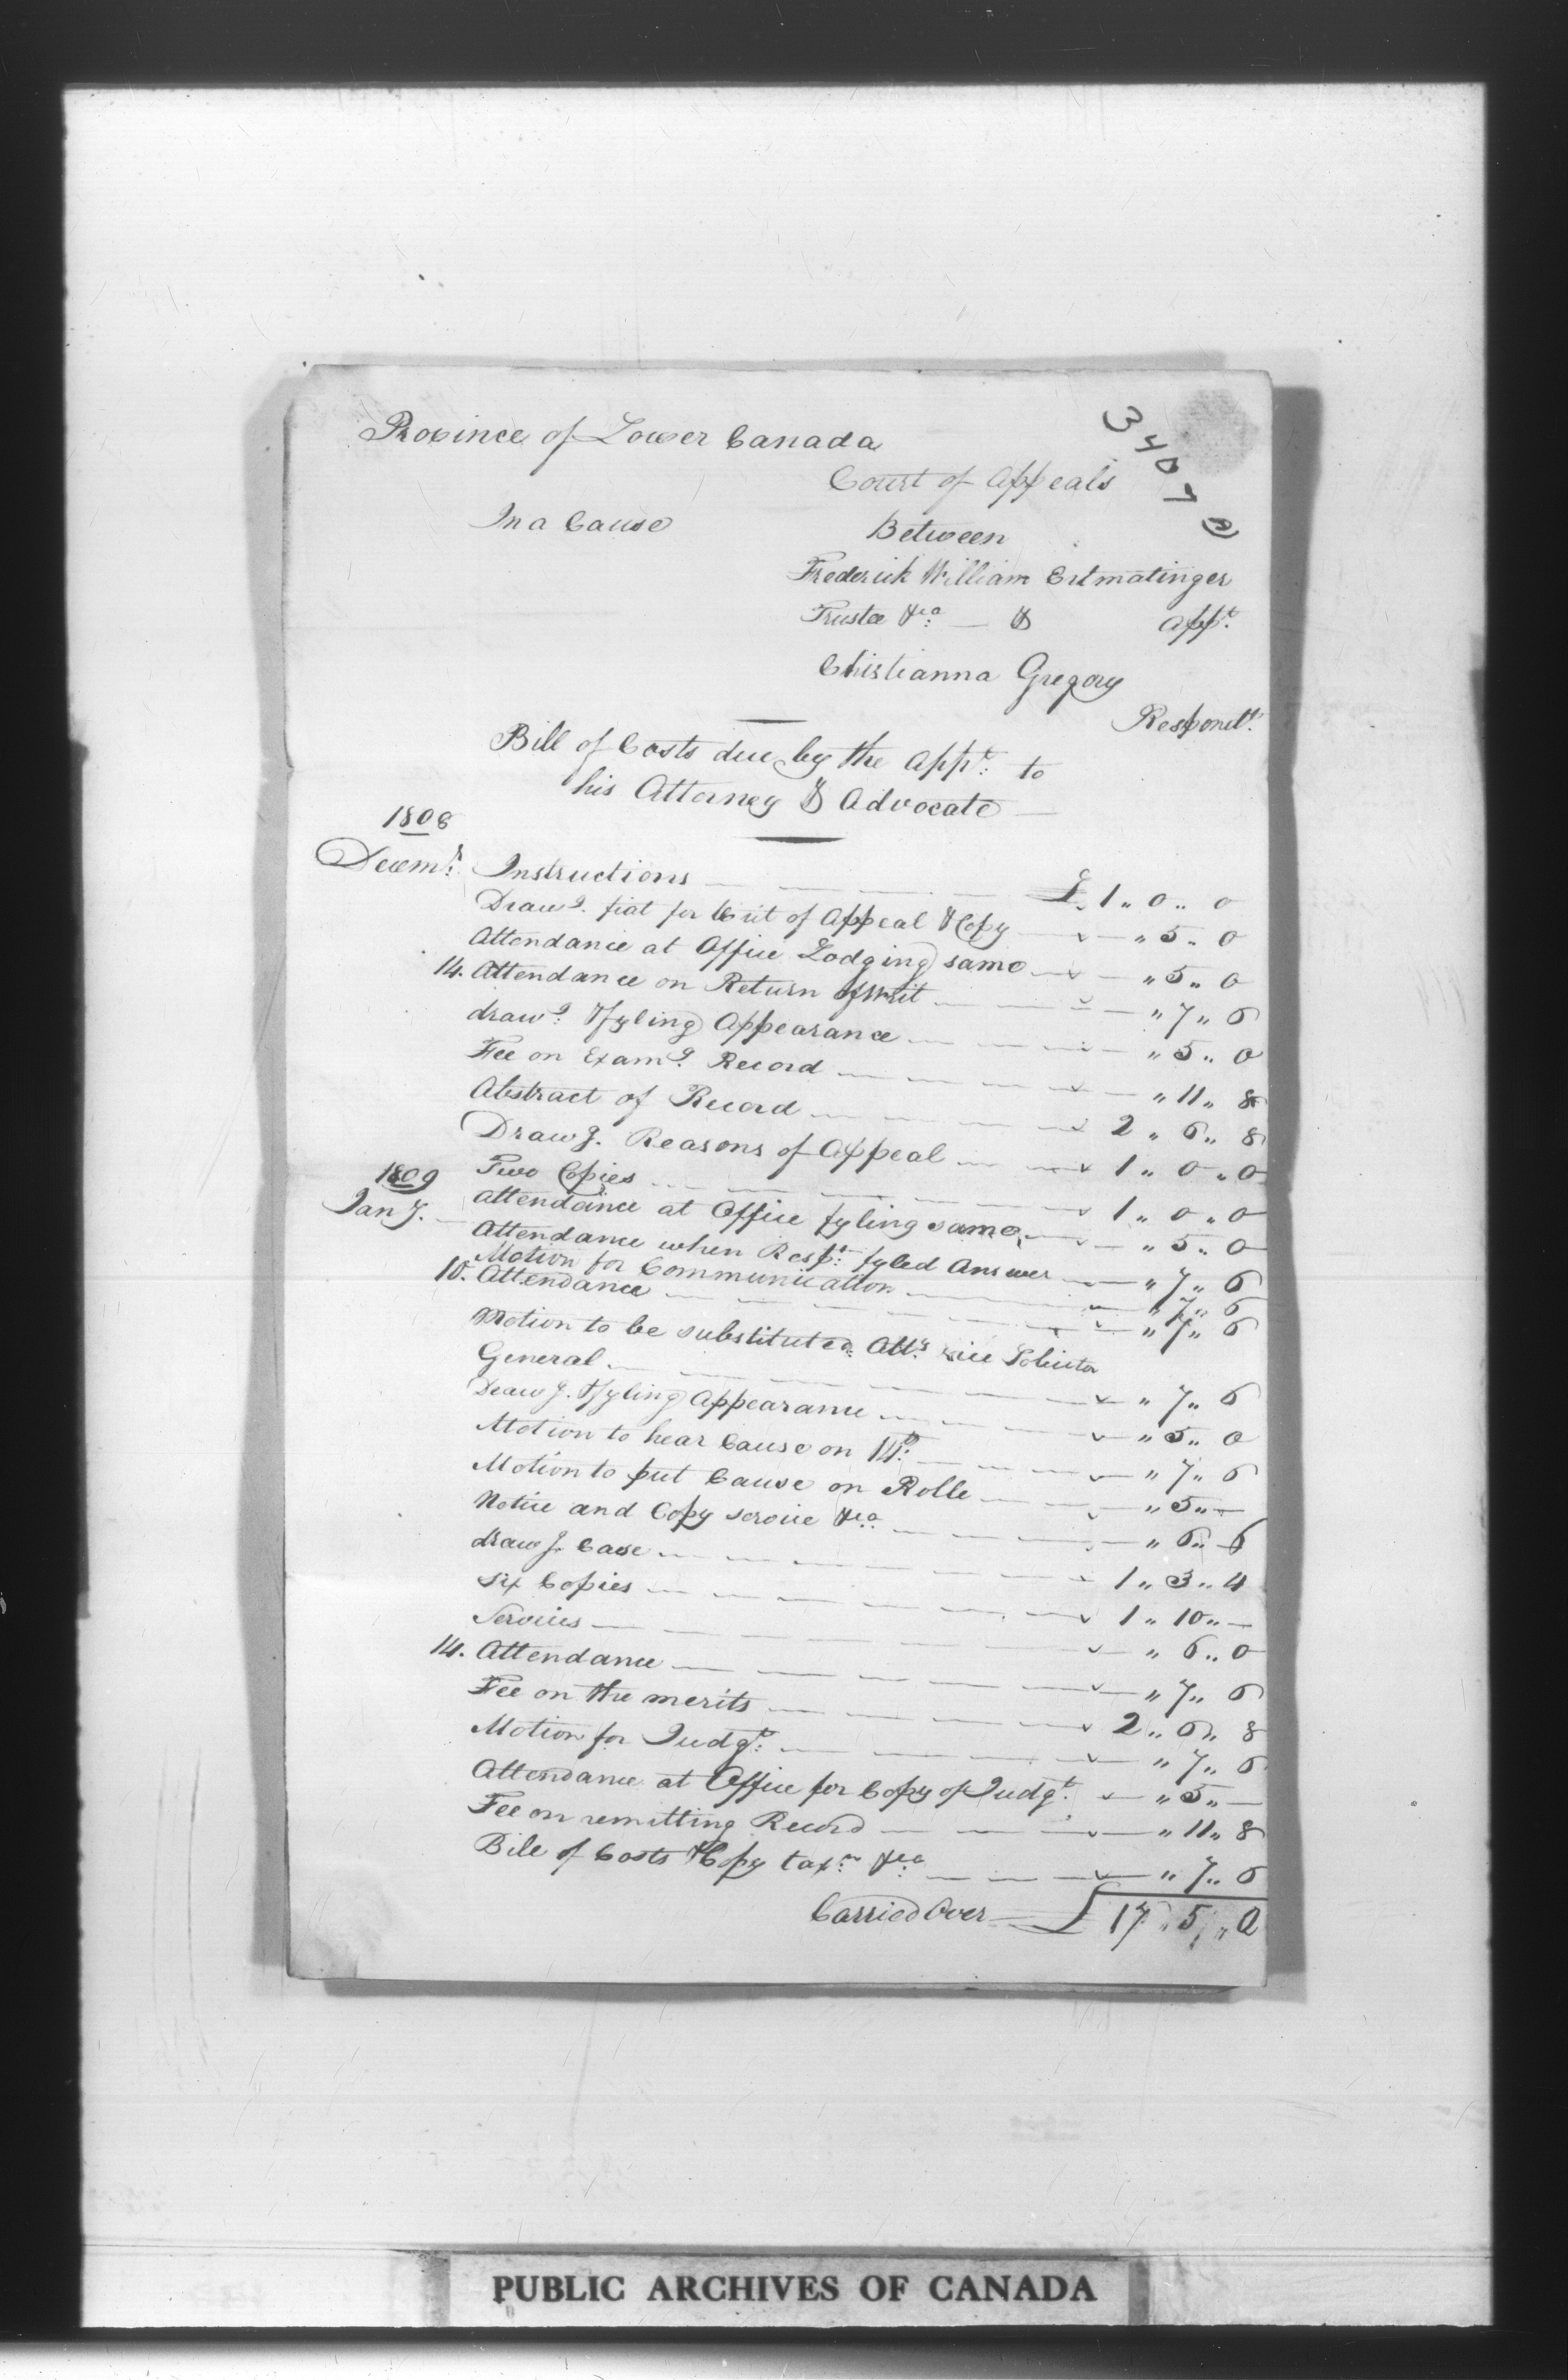 3407
Province of Lower Canada
Court of Appeals
In a Cause
Between
Frederick William Ertmatinger
Trustee &ca: — & Appt.
Christianna Gregory
Respondt.
Bill of Costs due by the Appt: to
his Attorney & Advocate —
1808
Decemr: Instructions — £ 1 " 0 " 0
Drawg. fiat for Writ of Appeal & Copy — " 5 " 0
Attendance at Office Lodging same — " 5 " 0
14. Attendance on Return of Writ — " 7 " 6
drawg: & fyling Appearance — " 5 " 0
Fee on Examg. Record — " 11 " 8
Abstract of Record — 2 " 6 " 8
Drawg. Reasons of Appeal — 1 " 0 " 0
Two Copies — 1 " 0 " 0
1809
Jany. — Attendance at Office fyling same — " 5 " 0
Attendance when Respt: fyled Answer — " 7 " 6
Motion for Communication — " 7 " 6
10. Attendance — " 7 " 6
Motion to be substituted Atty: vice Solicitor
General — " 7 " 6
Drawg. & fyling Appearance — " 5 " 0
Motion to hear Cause on 14th: — " 7 " 6
Motion to put Cause on Rolle — " 5 " —
Notice and Copy service &ca: — " 6 " 6
drawg. Case — 1 " 3 " 4
Six Copies — 1 " 10 " —
Services — " 6 " 0
14. Attendance — " 7 " 6
Fee on the merits — 2 " 6 " 8
Motion for Judgt: — " 7 " 6
Attendance at Office for Copy of Judgt. — " 5 " —
Fee on remitting Record — " 11 " 8
Bill of Costs & Copy taxn: &ca — " 7 " 6
Carried Over — £ 17 " 5 " 0
PUBLIC ARCHIVES OF CANADA